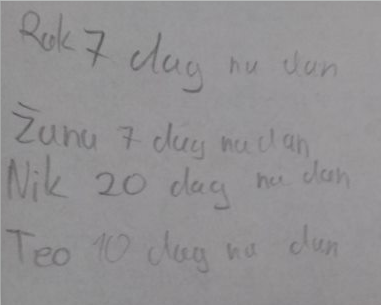 Rok 7 dag na dan
Žana 7 dag na dan
Nik 20 dag na dan
Teo 10 dag na dan